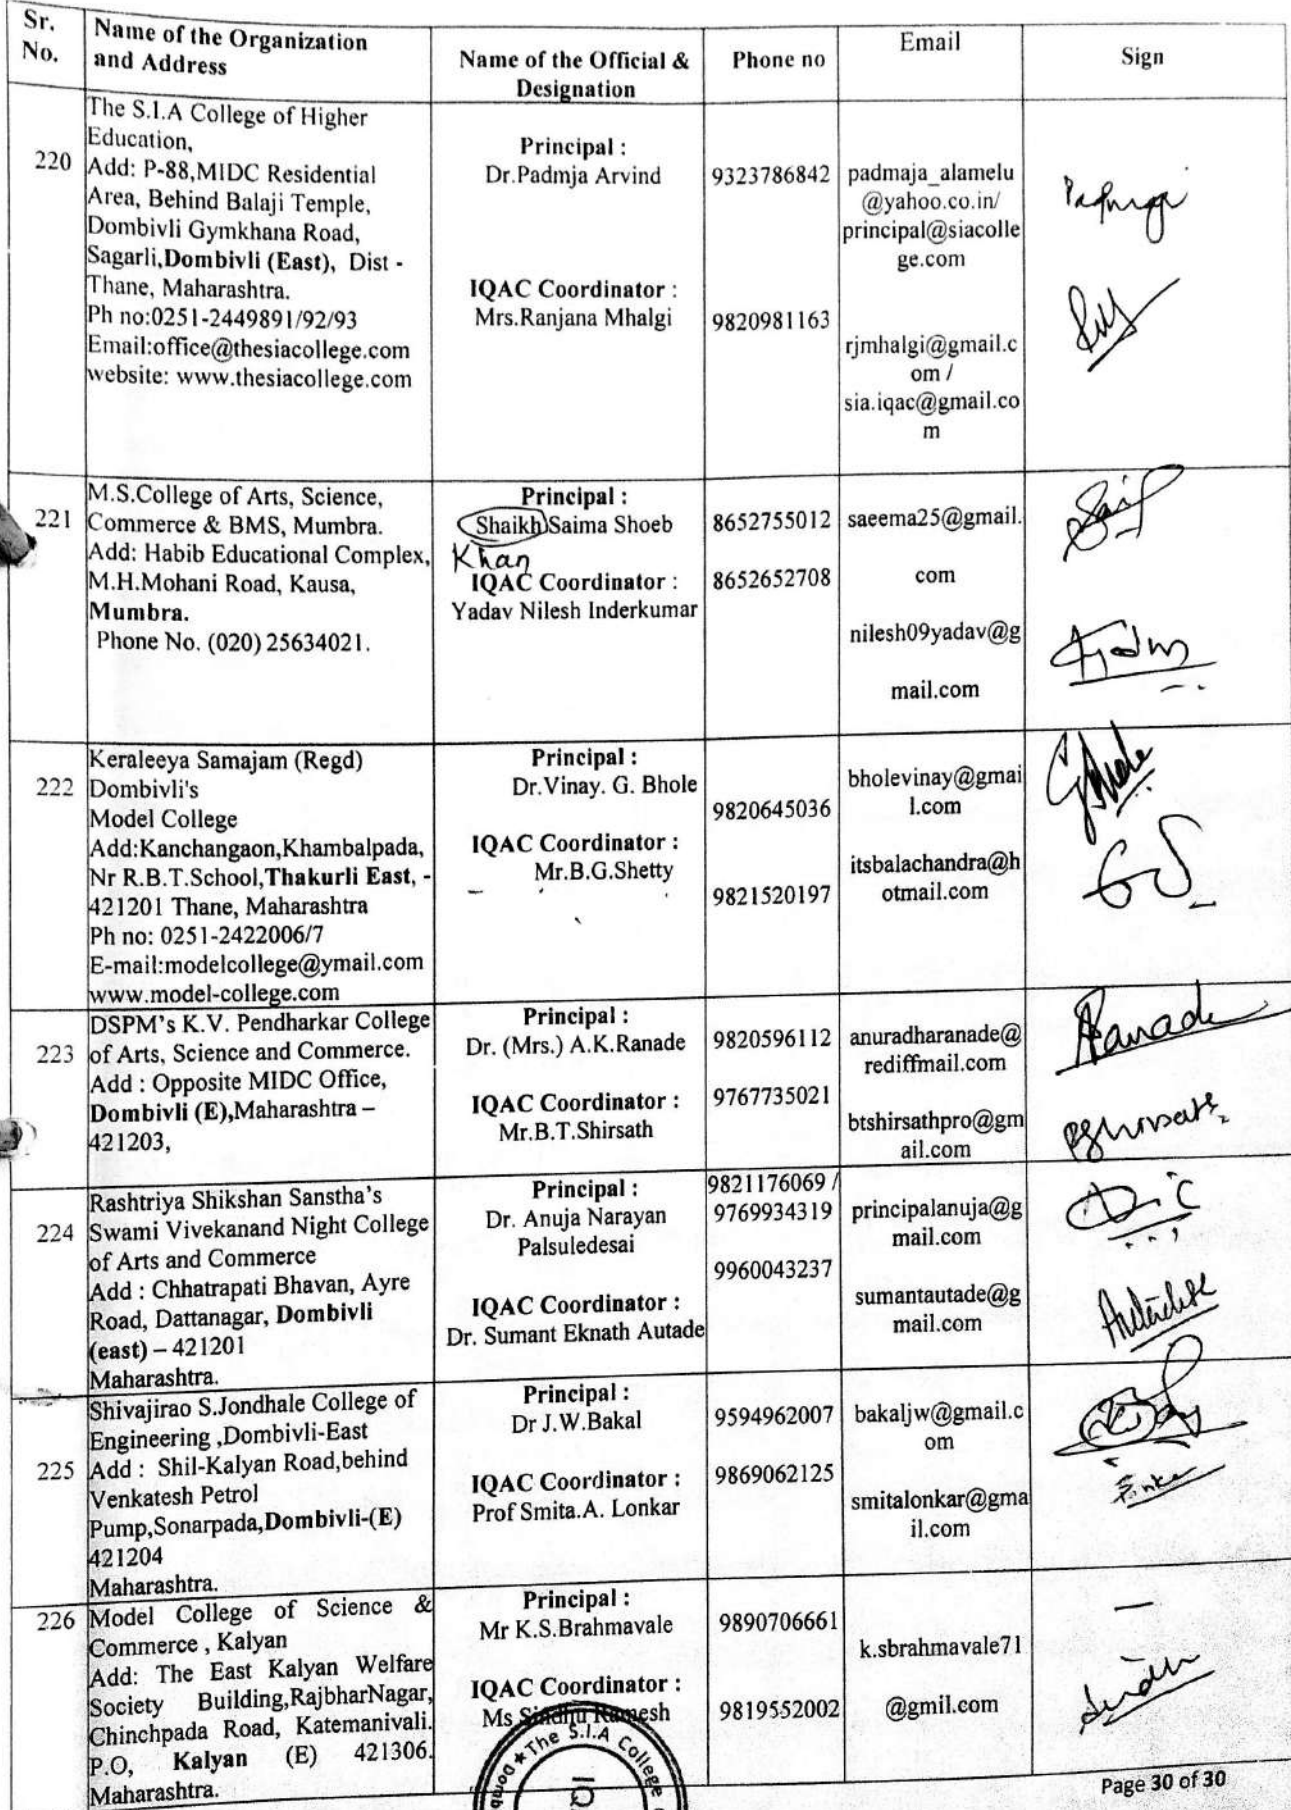 Sr.
No.
Name of the Organization
and Address
Name of the Official &
Designation
Phone no
Email
Sign
220
The S.I.A College of Higher
Education,
Add: P-88,MIDC Residential
Area, Behind Balaji Temple,
Dombivli Gymkhana Road,
Sagarli,Dombivli (East), Dist -
Thane, Maharashtra.
Ph no:0251-2449891/92/93
Email:office@thesiacollege.com
website: www.thesiacollege.com
Principal :
Dr.Padmja Arvind
IQAC Coordinator :
Mrs.Ranjana Mhalgi
9323786842
9820981163
padmaja_alamelu
@yahoo.co.in/
principal@siacolle
ge.com
rjmhalgi@gmail.c
om /
sia.iqac@gmail.co
m
221
M.S.College of Arts, Science,
Commerce & BMS, Mumbra.
Add: Habib Educational Complex,
M.H.Mohani Road, Kausa,
Mumbra.
Phone No. (020) 25634021.
Principal :
Shaikh Saima Shoeb
Khan
IQAC Coordinator :
Yadav Nilesh Inderkumar
8652755012
8652652708
saeema25@gmail.
com
nilesh09yadav@g
mail.com
222
Keraleeya Samajam (Regd)
Dombivli's
Model College
Add:Kanchangaon,Khambalpada,
Nr R.B.T.School,Thakurli East, -
421201 Thane, Maharashtra
Ph no: 0251-2422006/7
E-mail:modelcollege@ymail.com
www.model-college.com
Principal :
Dr.Vinay. G. Bhole
IQAC Coordinator :
Mr.B.G.Shetty
9820645036
9821520197
bholevinay@gmai
l.com
itsbalachandra@h
otmail.com
223
DSPM’s K.V. Pendharkar College
of Arts, Science and Commerce.
Add : Opposite MIDC Office,
Dombivli (E),Maharashtra –
421203,
Principal :
Dr. (Mrs.) A.K.Ranade
IQAC Coordinator :
Mr.B.T.Shirsath
9820596112
9767735021
anuradharanade@
rediffmail.com
btshirsathpro@gm
ail.com
Ranade
224
Rashtriya Shikshan Sanstha’s
Swami Vivekanand Night College
of Arts and Commerce
Add : Chhatrapati Bhavan, Ayre
Road, Dattanagar, Dombivli
(east) – 421201
Maharashtra.
Principal :
Dr. Anuja Narayan
Palsuledesai
IQAC Coordinator :
Dr. Sumant Eknath Autade
9821176069 /
9769934319
9960043237
principalanuja@g
mail.com
sumantautade@g
mail.com
225
Shivajirao S.Jondhale College of
Engineering ,Dombivli-East
Add : Shil-Kalyan Road,behind
Venkatesh Petrol
Pump,Sonarpada,Dombivli-(E)
421204
Maharashtra.
Principal :
Dr J.W.Bakal
IQAC Coordinator :
Prof Smita.A. Lonkar
9594962007
9869062125
bakaljw@gmail.c
om
smitalonkar@gma
il.com
226
Model College of Science &
Commerce , Kalyan
Add: The East Kalyan Welfare
Society Building,RajbharNagar,
Chinchpada Road, Katemanivali.
P.O, Kalyan (E) 421306.
Maharashtra.
Principal :
Mr K.S.Brahmavale
IQAC Coordinator :
Ms Sindhu Ramesh
9890706661
9819552002
k.sbrahmavale71
@gmil.com
The S.I.A College
Page 30 of 30